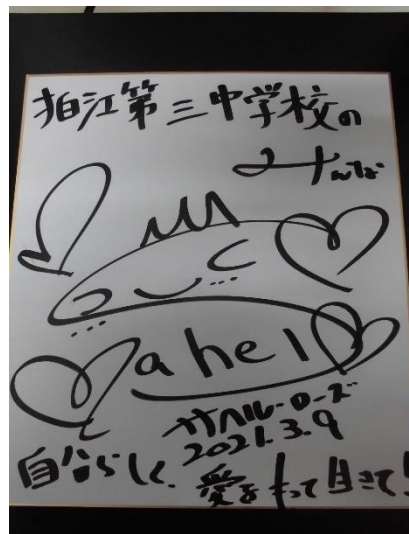 狛江第三中学校の
みんな
Sahel
サヘル・ローズ
2021.3.9
自分らしく、
愛をもって生きて!